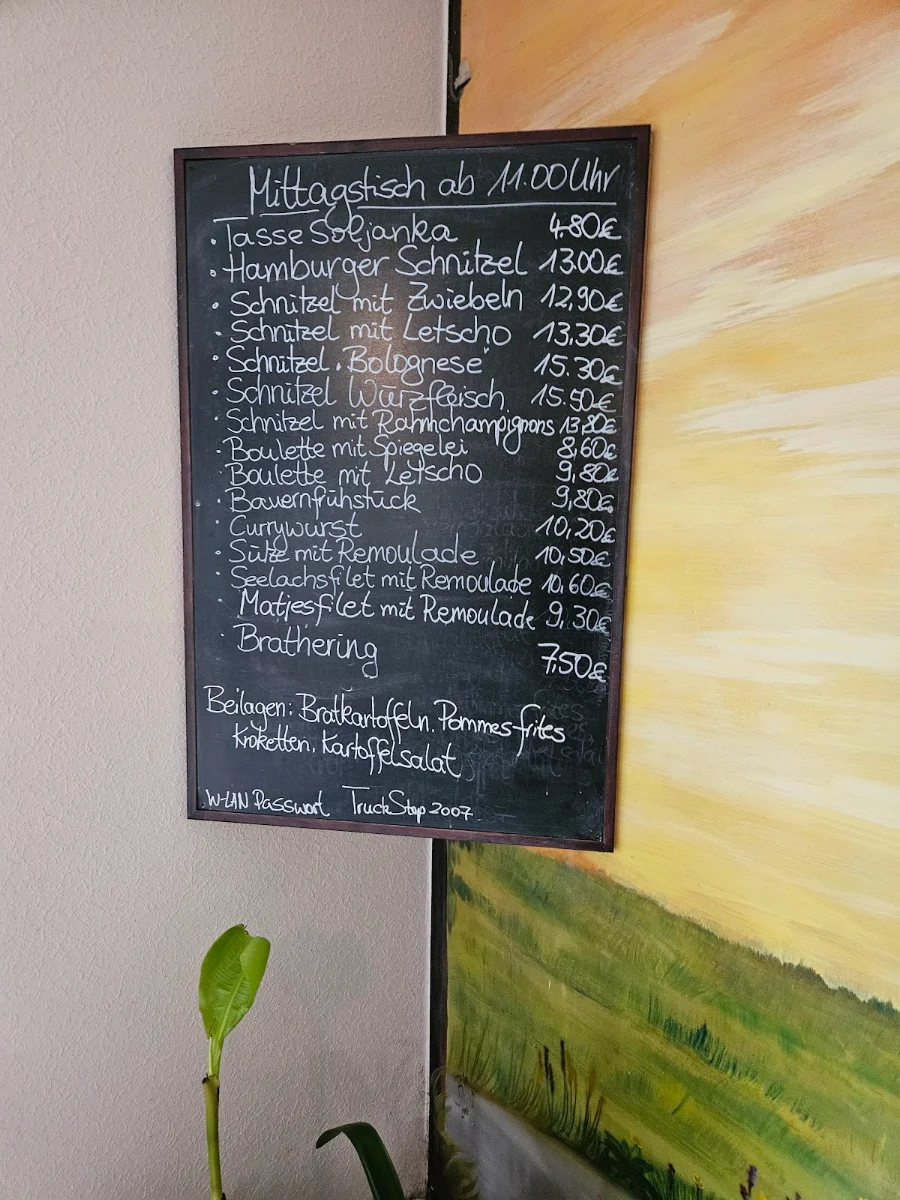 Mittagstisch ab 11.00 Uhr
· Tasse Soljanka 4.80€
· Hamburger Schnitzel 13.00€
· Schnitzel mit Zwiebeln 12,90€
· Schnitzel mit Letscho 13,30€
· Schnitzel „Bolognese“ 15.30€
· Schnitzel Würzfleisch 15.50€
· Schnitzel mit Rahmchampignons 13,80€
· Boulette mit Spiegelei 8,60€
· Boulette mit Letscho 9,80€
· Bauernfühstück 9,80€
· Currywurst 10,20€
· Sülze mit Remoulade 10,50€
· Seelachsfilet mit Remoulade 10,60€
· Matjesfilet mit Remoulade 9,30€
· Brathering 7,50€
Beilagen: Bratkartoffeln, Pommes-frites
Kroketten, Kartoffelsalat
W-LAN Passwort TruckStop2007